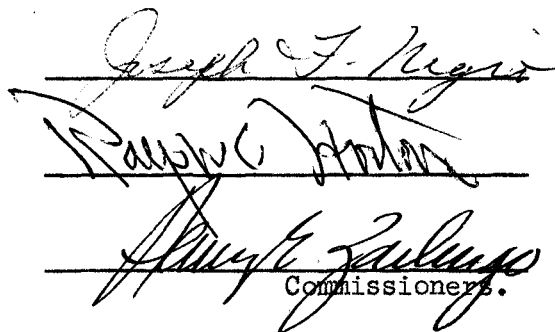 Joseph F. Negri
Ralph C Horton
Henry E. Zarlengo
Commissioners.